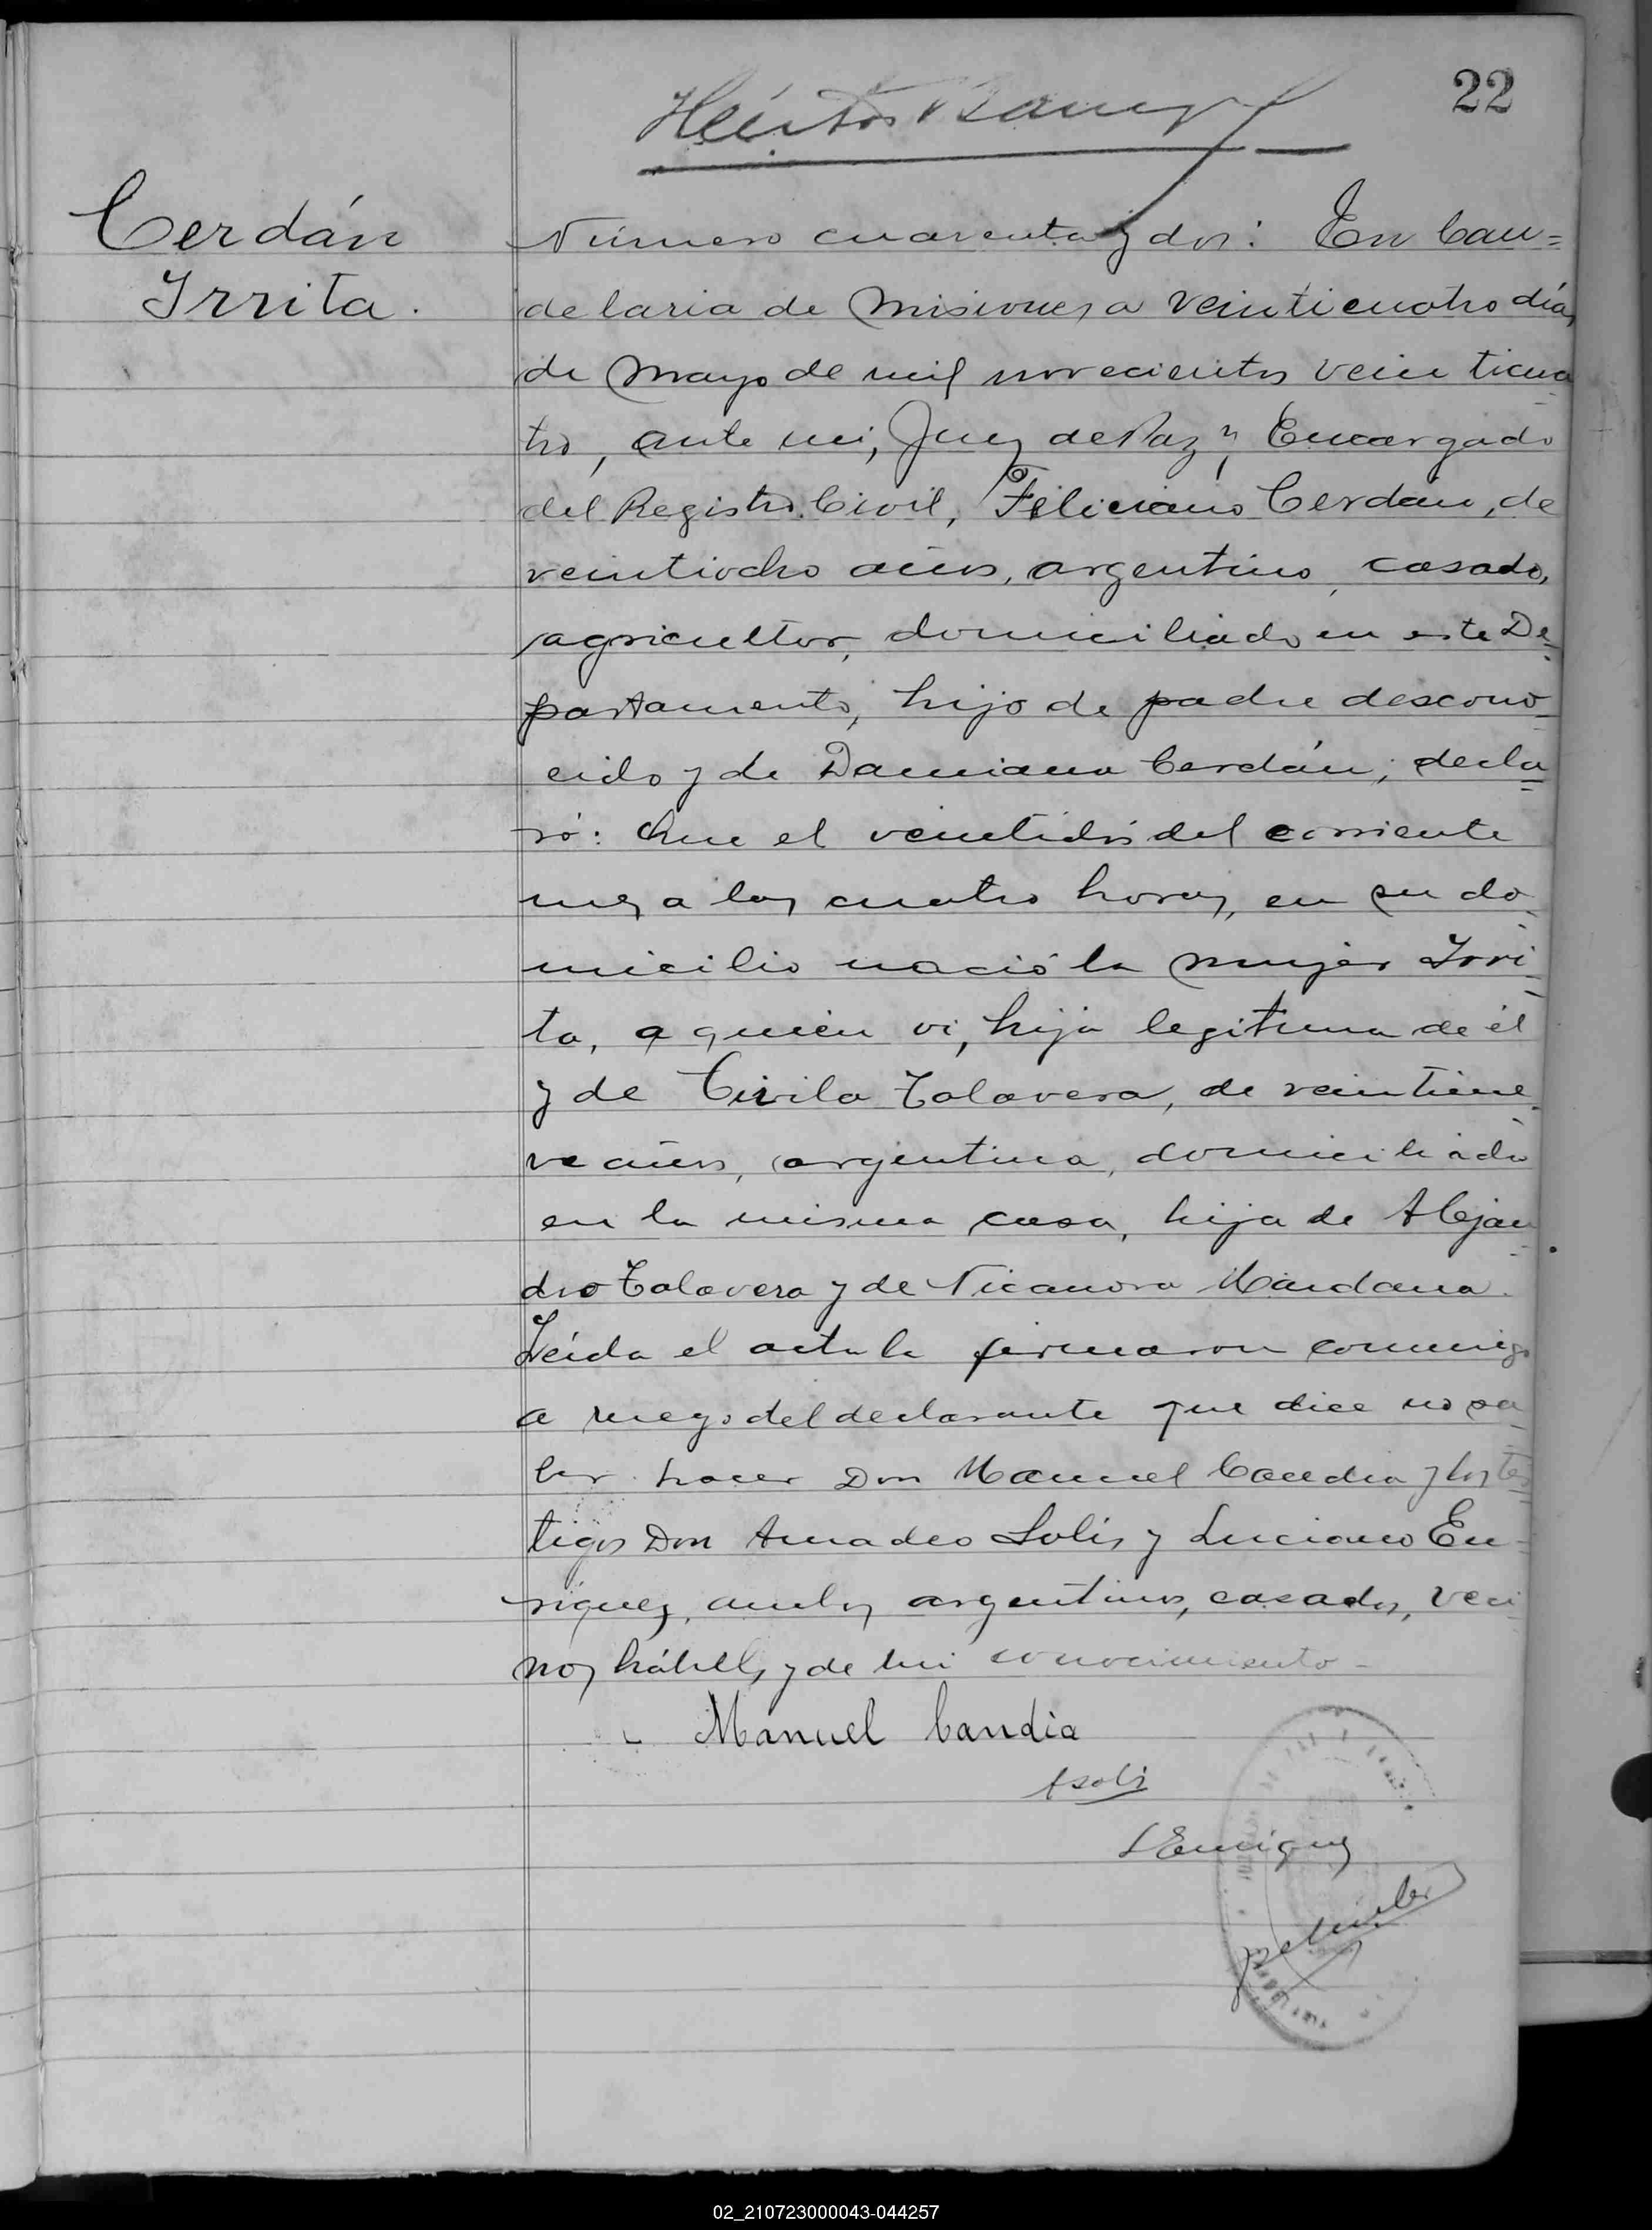 22
Cerdán
Irrita.
Número cuarenta y dos: En Can=
delaria de Misiones a veinticuatro días
de Mayo de mil novecientos veinticua
tro, ante mi, Juez de Paz y Encargado
del Registro Civil, Feliciano Cerdán, de
veintiocho años, argentino, casado,
agricultor, domiciliado en este De=
partamento, hijo de padre descono-
cido y de Damiana Cerdán; decla=
ró: Que el veintidós del corriente
mes a las cuatro horas, en su do-
micilio nació la mujer Irri-
ta, a quien vi, hija legitima de él
y de Civila Talavera, de veintinue-
ve años, argentina, domiciliada
en la misma casa, hija de Alejan-
dro Talavera y de Nicanora Maidana.
Leída el acta la firmaron conmigo
a ruego del declarante que dice no sa-
ber hacer Don Manuel Candia y los tes
tigos Don Amadeo Solis y Luciano En-
riquez, ambos argentinos, casados, veci
nos hábiles y de mi conocimiento-
Manuel Candia
ASolis
LEnriquez
02_210723000043-044257